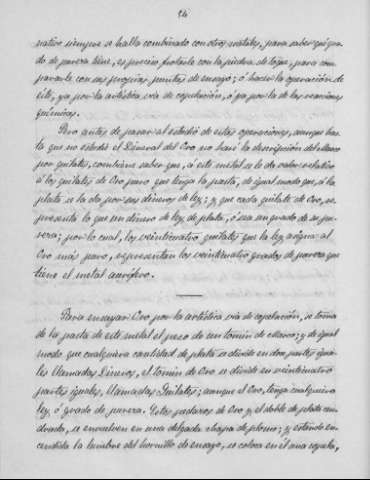 24
nativo siempre se halla combinado con otros metales, para saber qué gra-
do de pureza tiene, es preciso frotarle con la piedra de toque, para com-
pararle con sus propias puntas de ensayo; ó hacer la operación de
éste, ya por la artística vía de copelación, ó ya por la de las reacciones
químicas.
Pero antes de pasar al estudio de estas operaciones, aunque has-
ta que no estudié el Dineral del Oro no haré la descripción del marco
por quilates, conviene saber que, á este metal se le da valor relativo
á los quilates de Oro puro que tenga la pasta, de igual modo que, á la
plata se la da por sus dineros de ley; y que cada quilate de Oro, re-
presenta lo que un dinero de ley de plata, ó sea un grado de su pu-
reza; por lo cual, los veinticuatro quilates que la ley asigna al
Oro más puro, representan los veinticuatro grados de pureza que
tiene el metal aurífero.
Para ensayar Oro por la artística vía de copelación, se toma
de la pasta de este metal el peso de un tomín de Marco; y de igual
modo que cualquiera cantidad de plata se divide en doce partes igua-
les llamadas Dineros, el tomín de Oro se divide en veinticuatro
partes iguales, llamadas Quilates; aunque el Oro, tenga cualquiera
ley, ó grado de pureza. Estos pedazos de Oro y el doble de plata en-
drado, se envuelven en una delgada chapa de plomo; y estando en-
cendida la lumbre del hornillo de ensayo, se coloca en él una copela,